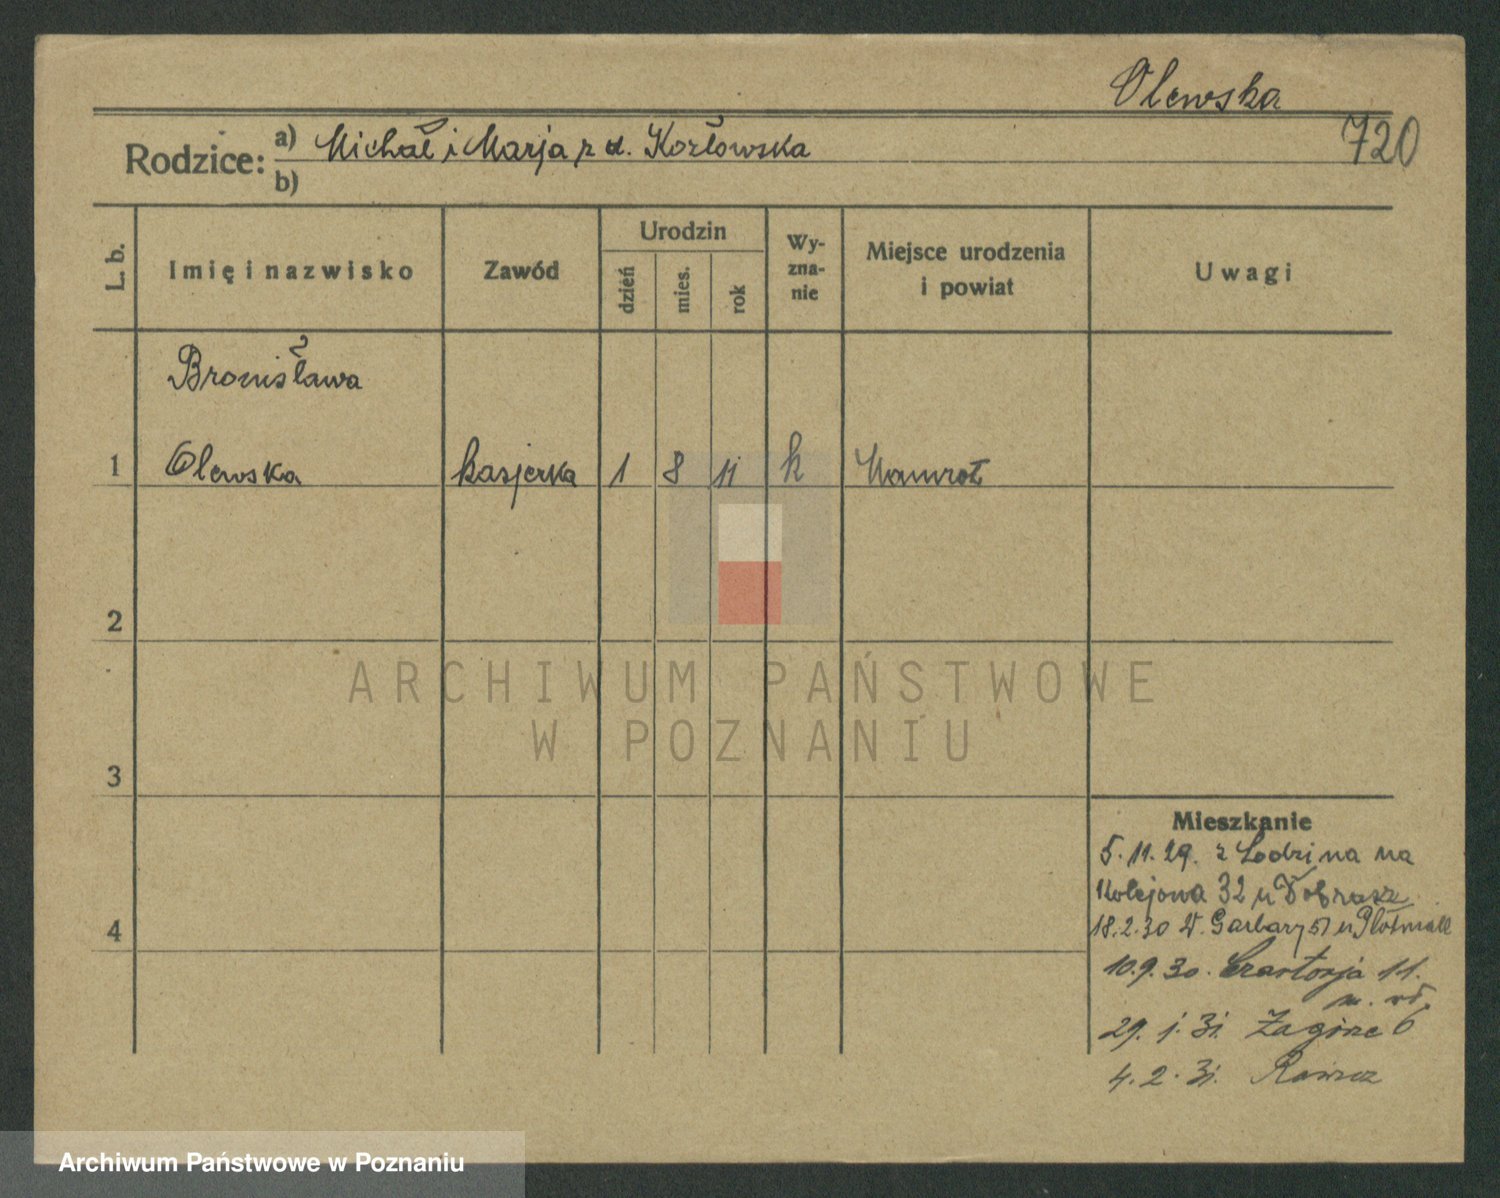 Olewska
720
Rodzice: a) Michał i Marja z d. Kozłowska
b)
L. b.
Imię i nazwisko
Zawód
Urodzin
dzień
mies.
rok
Wy-
zna-
nie
Miejsce urodzenia
i powiat
Uwagi
Bronisława
1 Olewska kasjerka 1 8 11 k Nawrot
2
3
4
ARCHIWUM PAŃSTWOWE
W POZNANIU
Mieszkanie
5.11.29. z Łodzi na
Kolejowa 32 u
18.2.30 W. Garbary 51 u
10.9.30. 11.
29. 1. 31. Zagórze 6
4. 2. 31. Rawicz
Archiwum Państwowe w Poznaniu